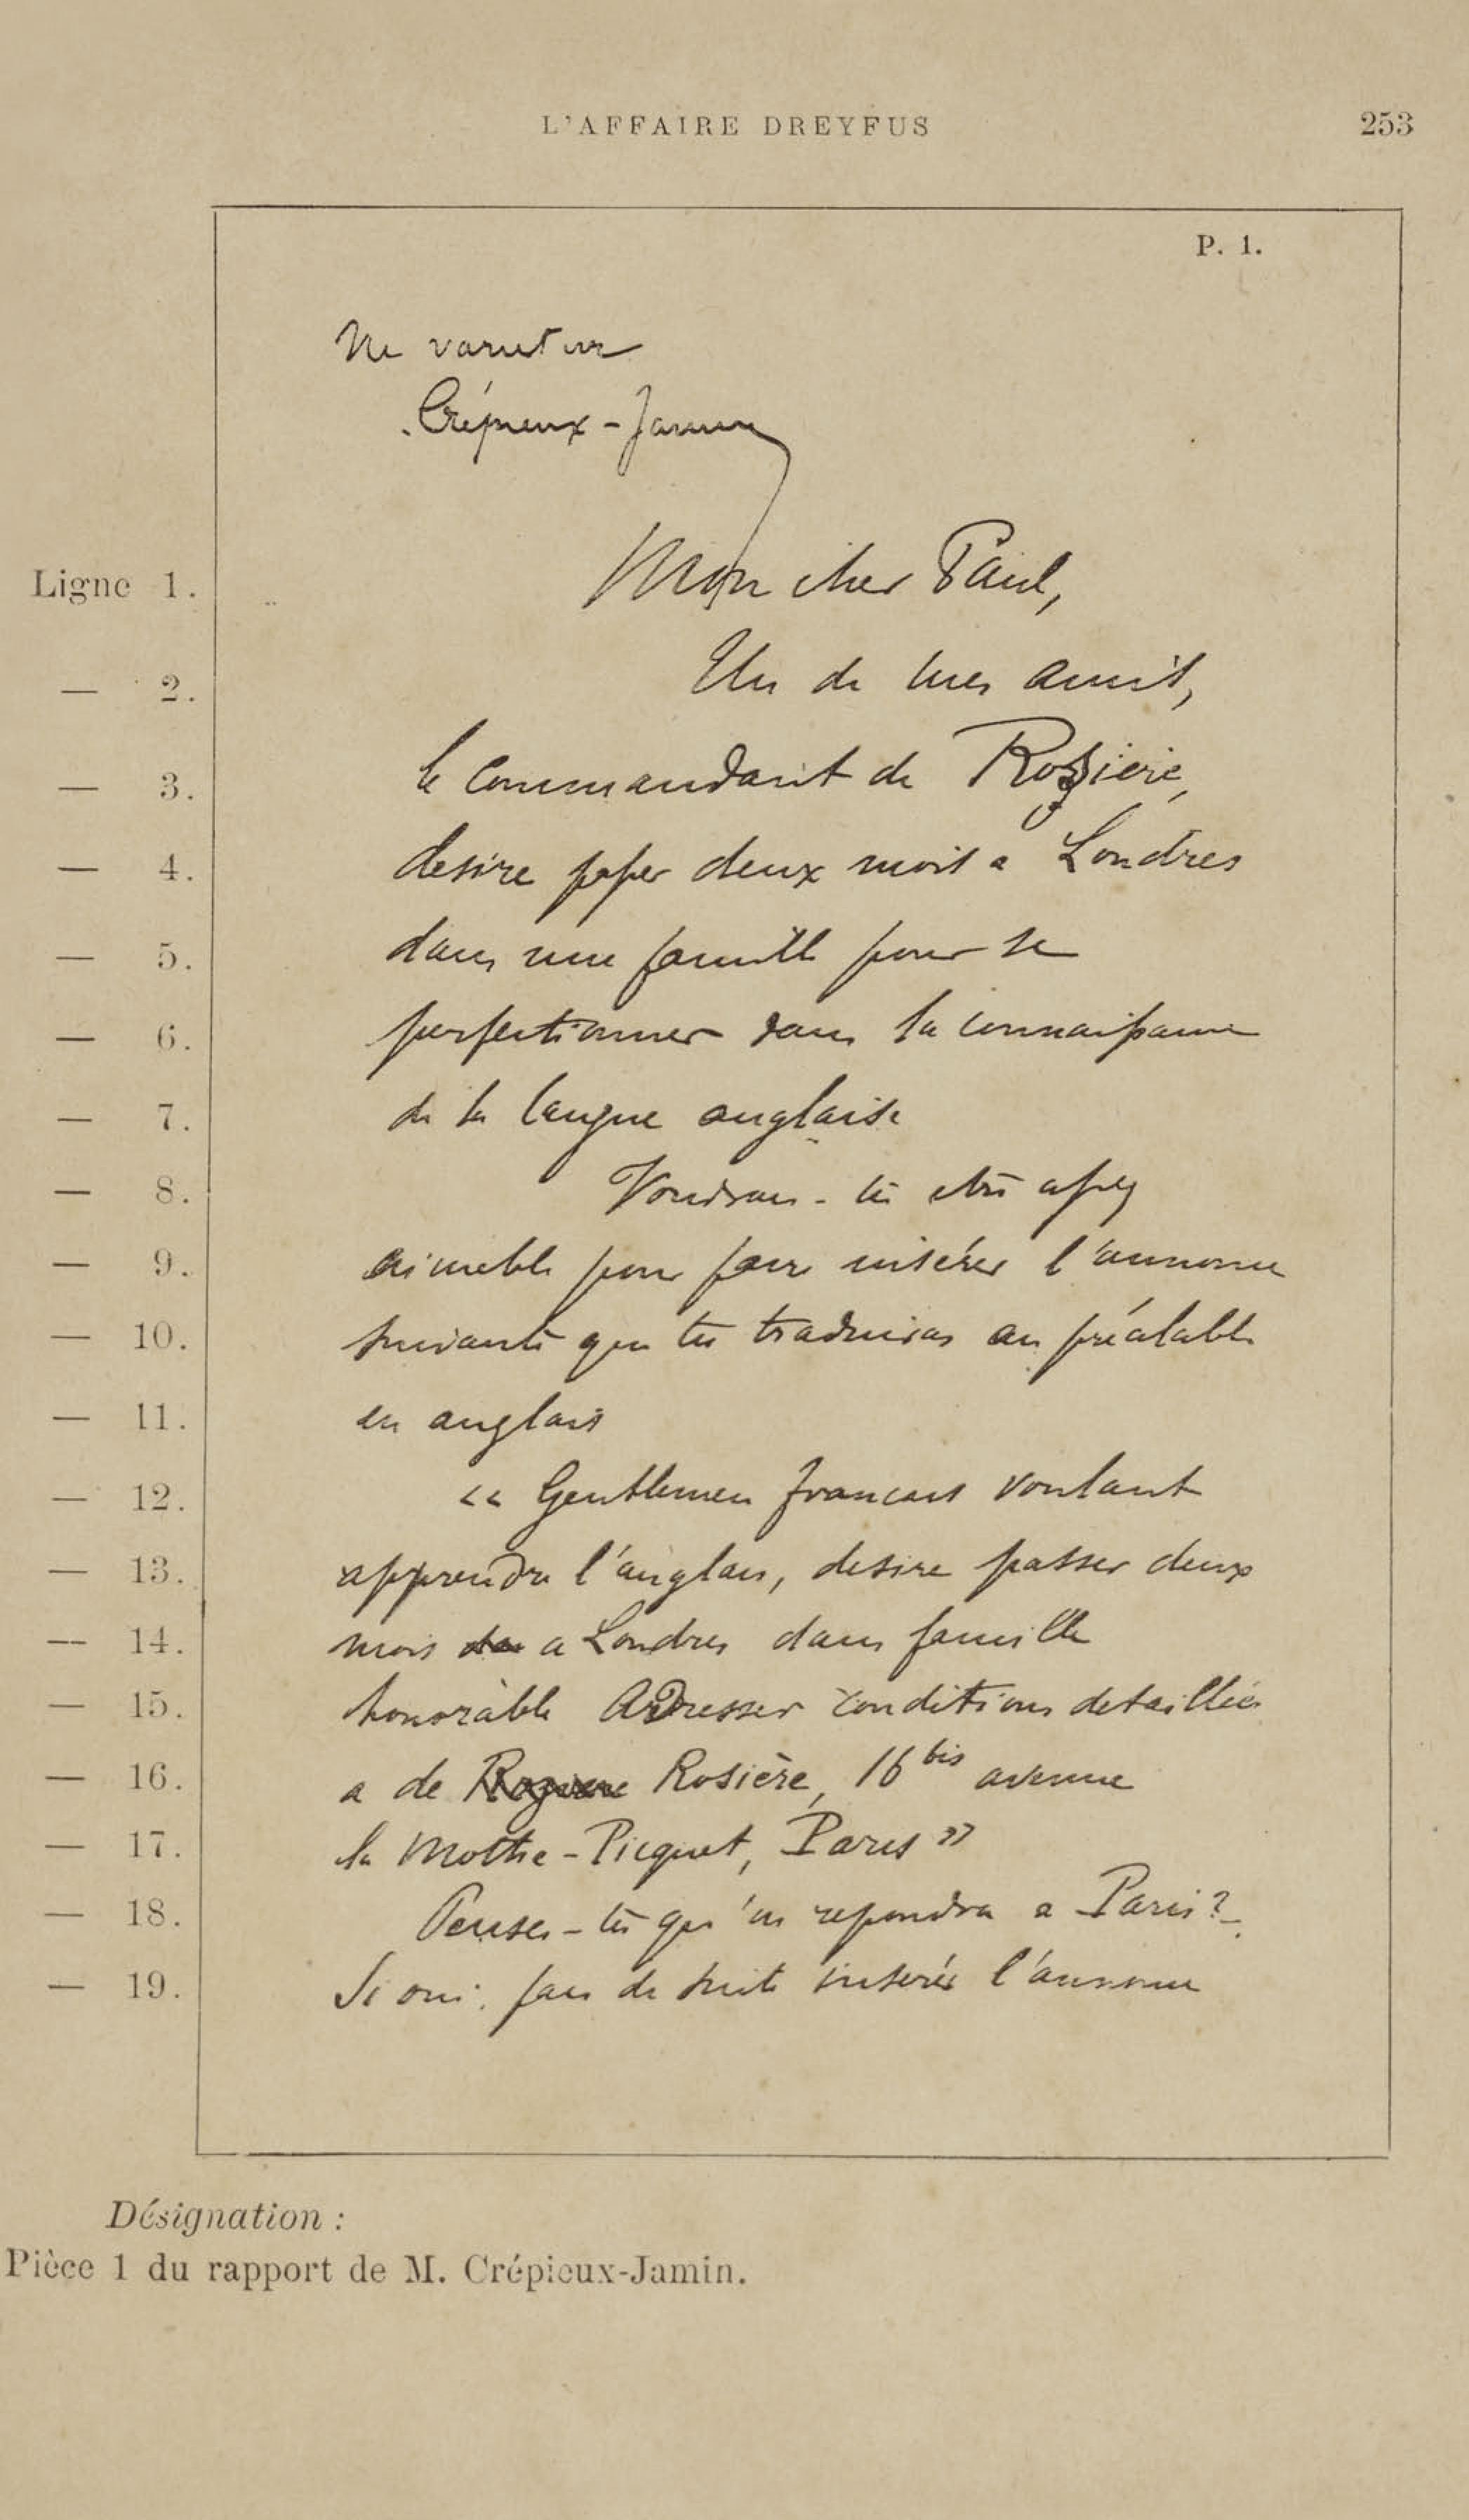 L'AFFAIRE DREYFUS 253
P. 1.
Ne varietur
Crépieux-Jamin
Ligne 1. Mon cher Paul,
— 2. Un de mes amis,
— 3. le Commandant de Rosière,
— 4. desire passer deux mois a Londres
— 5. dans une famille pour se
— 6. perfectionner dans la connaissance
— 7. de la langue anglaise
— 8. Voudrais-tu etre assez
— 9. aimable pour faire insérer l'annonce
— 10. suivante que tu traduiras au préalable
— 11. en anglais
— 12. « Gentlemen francais voulant
— 13. apprendre l'anglais, desire passer deux
— 14. mois a Londres dans famille
— 15. honorable Adresser conditions detaillées
— 16. a de Roziere Rosière, 16 bis avenue
— 17. la Mothe-Picquet, Paris »
— 18. Penses-tu qu'on repondra a Paris?
— 19. Si oui, fais de suite insérer l'annonce
Désignation :
Pièce 1 du rapport de M. Crépieux-Jamin.